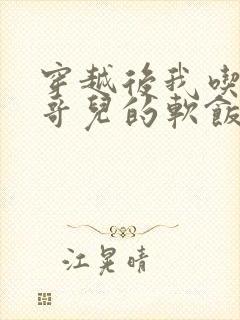 穿越後我喫
哥兒的軟飯
江晃晴